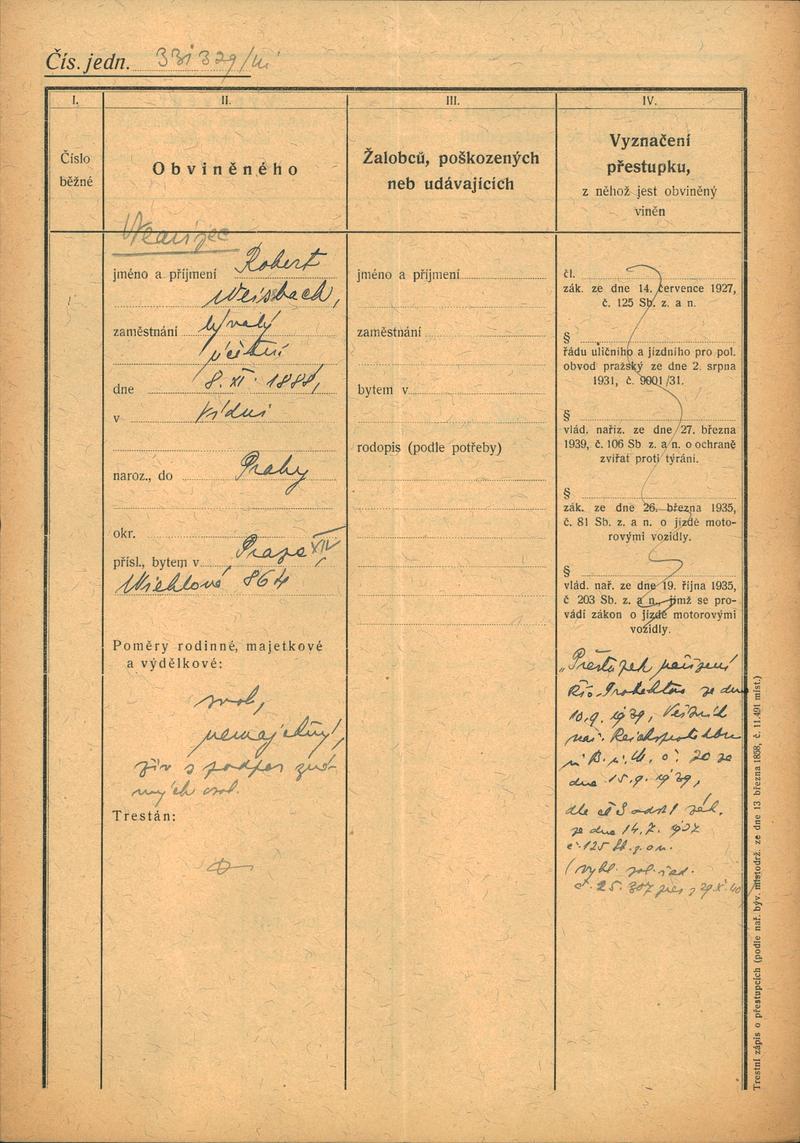 Čís. jedn.
I.
II.
III.
IV.
Číslo
běžné
Obviněného
Žalobců, poškozených
neb udávajících
Vyznačení
přestupku,
z něhož jest obviněný
viněn
jméno a příjmení Robert
Weisbach,
zaměstnání bývalý
účetní
dne 8. XI. 1888,
v Vídni
naroz., do Prahy
okr.
přísl., bytem v Praze XII,
Wiehlova 864
Poměry rodinné, majetkové
a výdělkové:
svob,
nemajetný,
živ s podpor
Trestán:
jméno a příjmení
zaměstnání
bytem v
rodopis (podle potřeby)
čl.
zák. ze dne 14. července 1927,
č. 125 Sb. z. a n.
§
řádu uličního a jízdního pro pol.
obvod pražský ze dne 2. srpna
1931, č. 9001/31.
§
vlád. naříz. ze dne 27. března
1939, č. 106 Sb z. a n. o ochraně
zvířat proti týrání.
§
zák. ze dne 26. března 1935,
č. 81 Sb. z. a n. o jízdě moto-
rovými vozidly.
§
vlád. nař. ze dne 19. října 1935,
č 203 Sb. z. a n., jímž se pro-
vádí zákon o jízdě motorovými
vozidly.
„Přestupek nařízení
Říš. Protektora ze dne
10.9. 1939, Věstník
nař. Reichsprotektora
ze
dne 15.9. 1939,
dle čl 3 odst 1 zák.
ze dne 14.7. 927
č. 125 Sb. z. a n.
Trestní zápis o přestupcích (podle nař. býv. místodrž. ze dne 13 března 1858, č. 11.491 míst.)